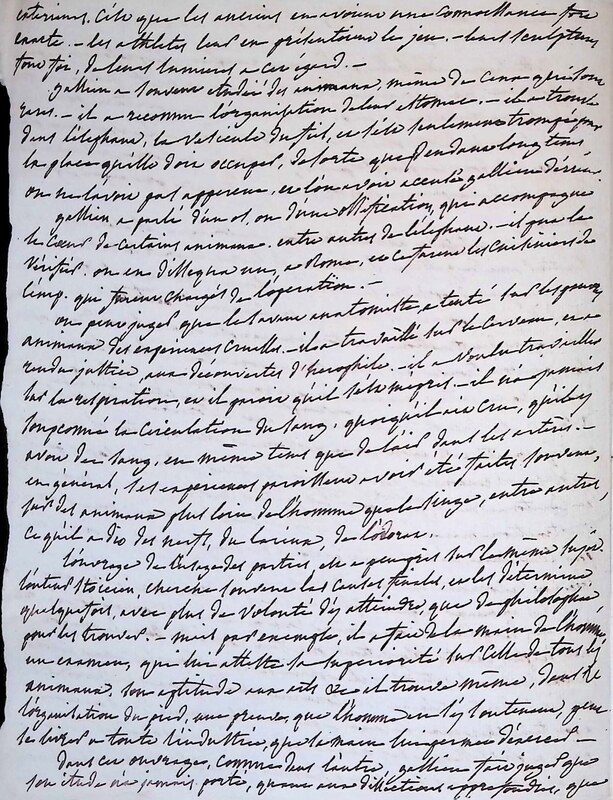 anciens en avoient une connoissance fort
exacte. — les athletes leur en présentoient le jeu. — leurs sculptures
font foi, de leurs lumieres a cet egard. —
gallien a souvent etudié des animaux, même de ceux qui sont
rares. — il a reconnu l'organisation de leur estomac. — il a trouvé
dans l'elephant, la vesicule du fiel, et s'est seulement trompé sur
la place qu'elle doit occuper, de sorte que pendant longtems
on ne l'avoit pas apperçue, et l'on avoit accusé gallien d'erreur.
gallien a parlé d'un os, ou d'une ossification, qui accompagne
le coeur de certains animaux. entre autres de l'elephant. —
verifier. on en disséqua un, a Rome, et ce furent les cuisiniers de
l'emp. qui furent chargés de l'operation. —
on peut juger que le savant anatomiste, a tenté sur les pauvres
animaux des experiences cruelles. — il a travaillé sur le cerveau, et a
rendu justice, aux decouvertes d'herophile. — il a voulu travailler
sur la respiration, et il paroit qu'il s'est mepris. — il n'a jamais
soupconné la circulation du sang, quoiqu'il ait cru, qu'il y
avoit du sang, en même tems que de l'air dans les artères. —
en general, ses experiences paroissent avoir été faites souvent,
sur des animaux plus loin de l'homme que le singe, entre autres,
ce qu'il a dit des nerfs, du larinx de l'odorat.
l'ouvrage de l'usage des parties, est a peu près sur le même sujet
l'auteur Stoicien, cherche souvent les causes finales, et les determine
quelquefois, avec plus de volonté d'y atteindre, que de philosophie
pour les trouver. — mais par exemple, il a fait de la main de l'homme
un examen, qui lui atteste sa superiorité sur celle de tous les
animaux, son aptitude aux arts &c il trouve même, dans
l'organisation du pied, une preuve, que l'homme en s'y soutenant, peut
se livrer a toute l'industrie, que la main
Dans cet ouvrage, comme dans l'autre, gallien fait juger que
son étude n'a jamais porté, quant aux dissections approfondies, que